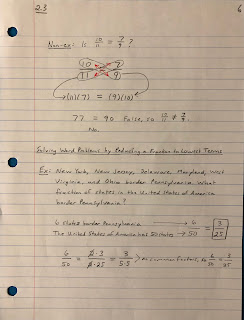 2.3 6
Non-ex: Is 10/11 = 7/9 ?
10 7
11 9
(11)(7) = (9)(10)
77 = 90 False, so 10/11 ≠ 7/9
No.
Solving Word Problems by Reducing a Fraction to Lowest Terms
Ex: New York, New Jersey, Delaware, Maryland, West
Virginia, and Ohio border Pennsylvania. What
fraction of states in the United States of America
border Pennsylvania?
6 states border Pennsylvania → 6 = 3/25
The United States of America has 50 states → 50
6/50 = 2·3/2·25 = 3/5·5 no common factors, so 6/50 = 3/25